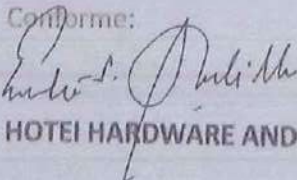 Conforme:
HOTEI HARDWARE AND